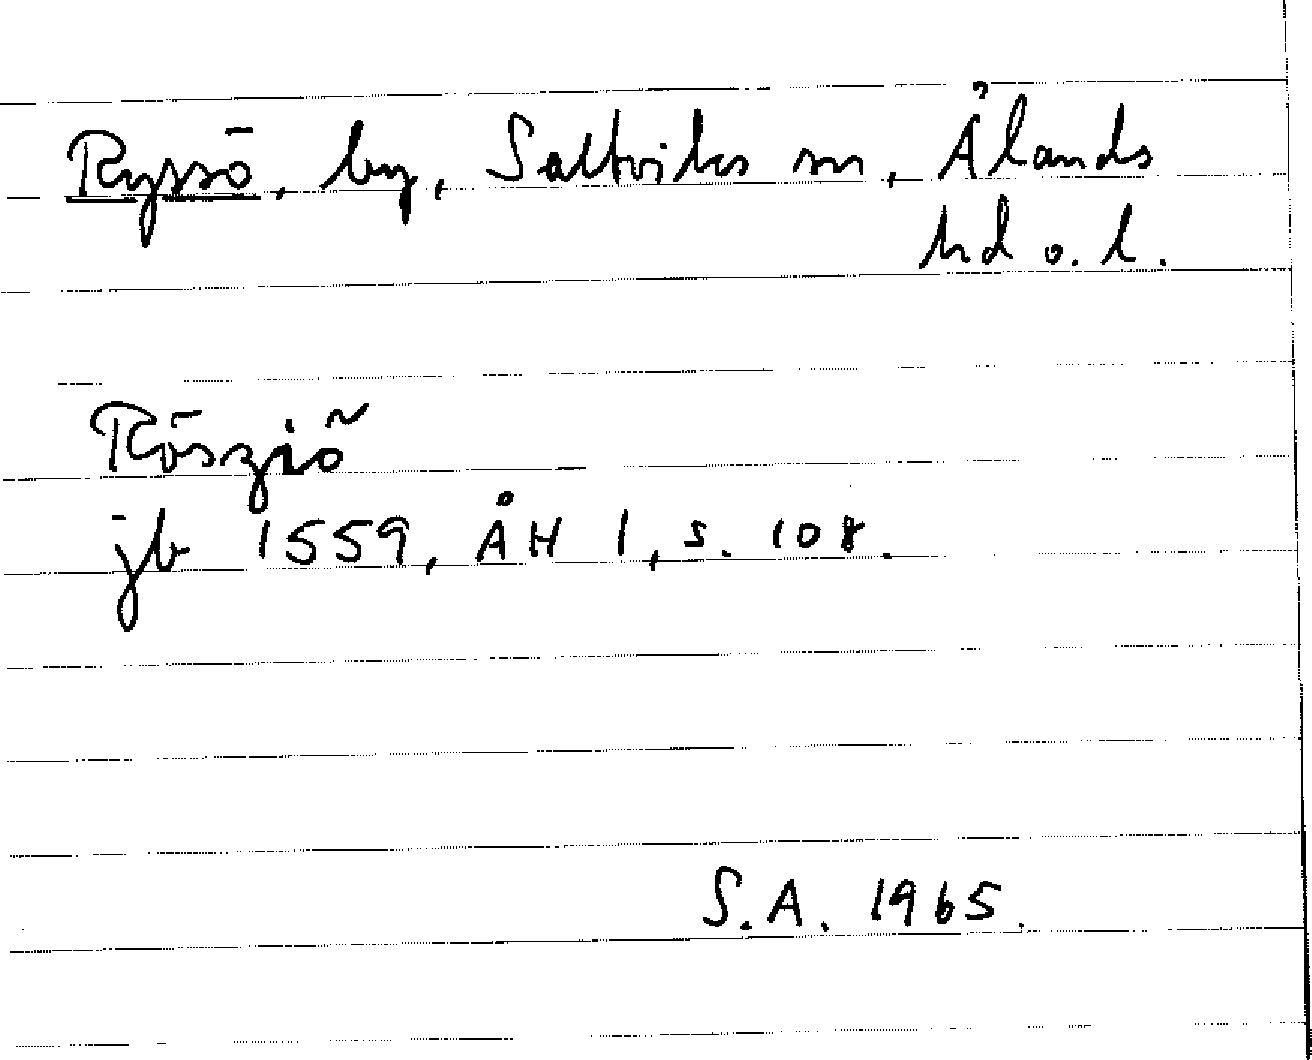 Ryssö, by, Saltviks sn, Ålands
hd o. l.
Röszjö
jb 1559, ÅH 1, s. 108.
S.A. 1965.